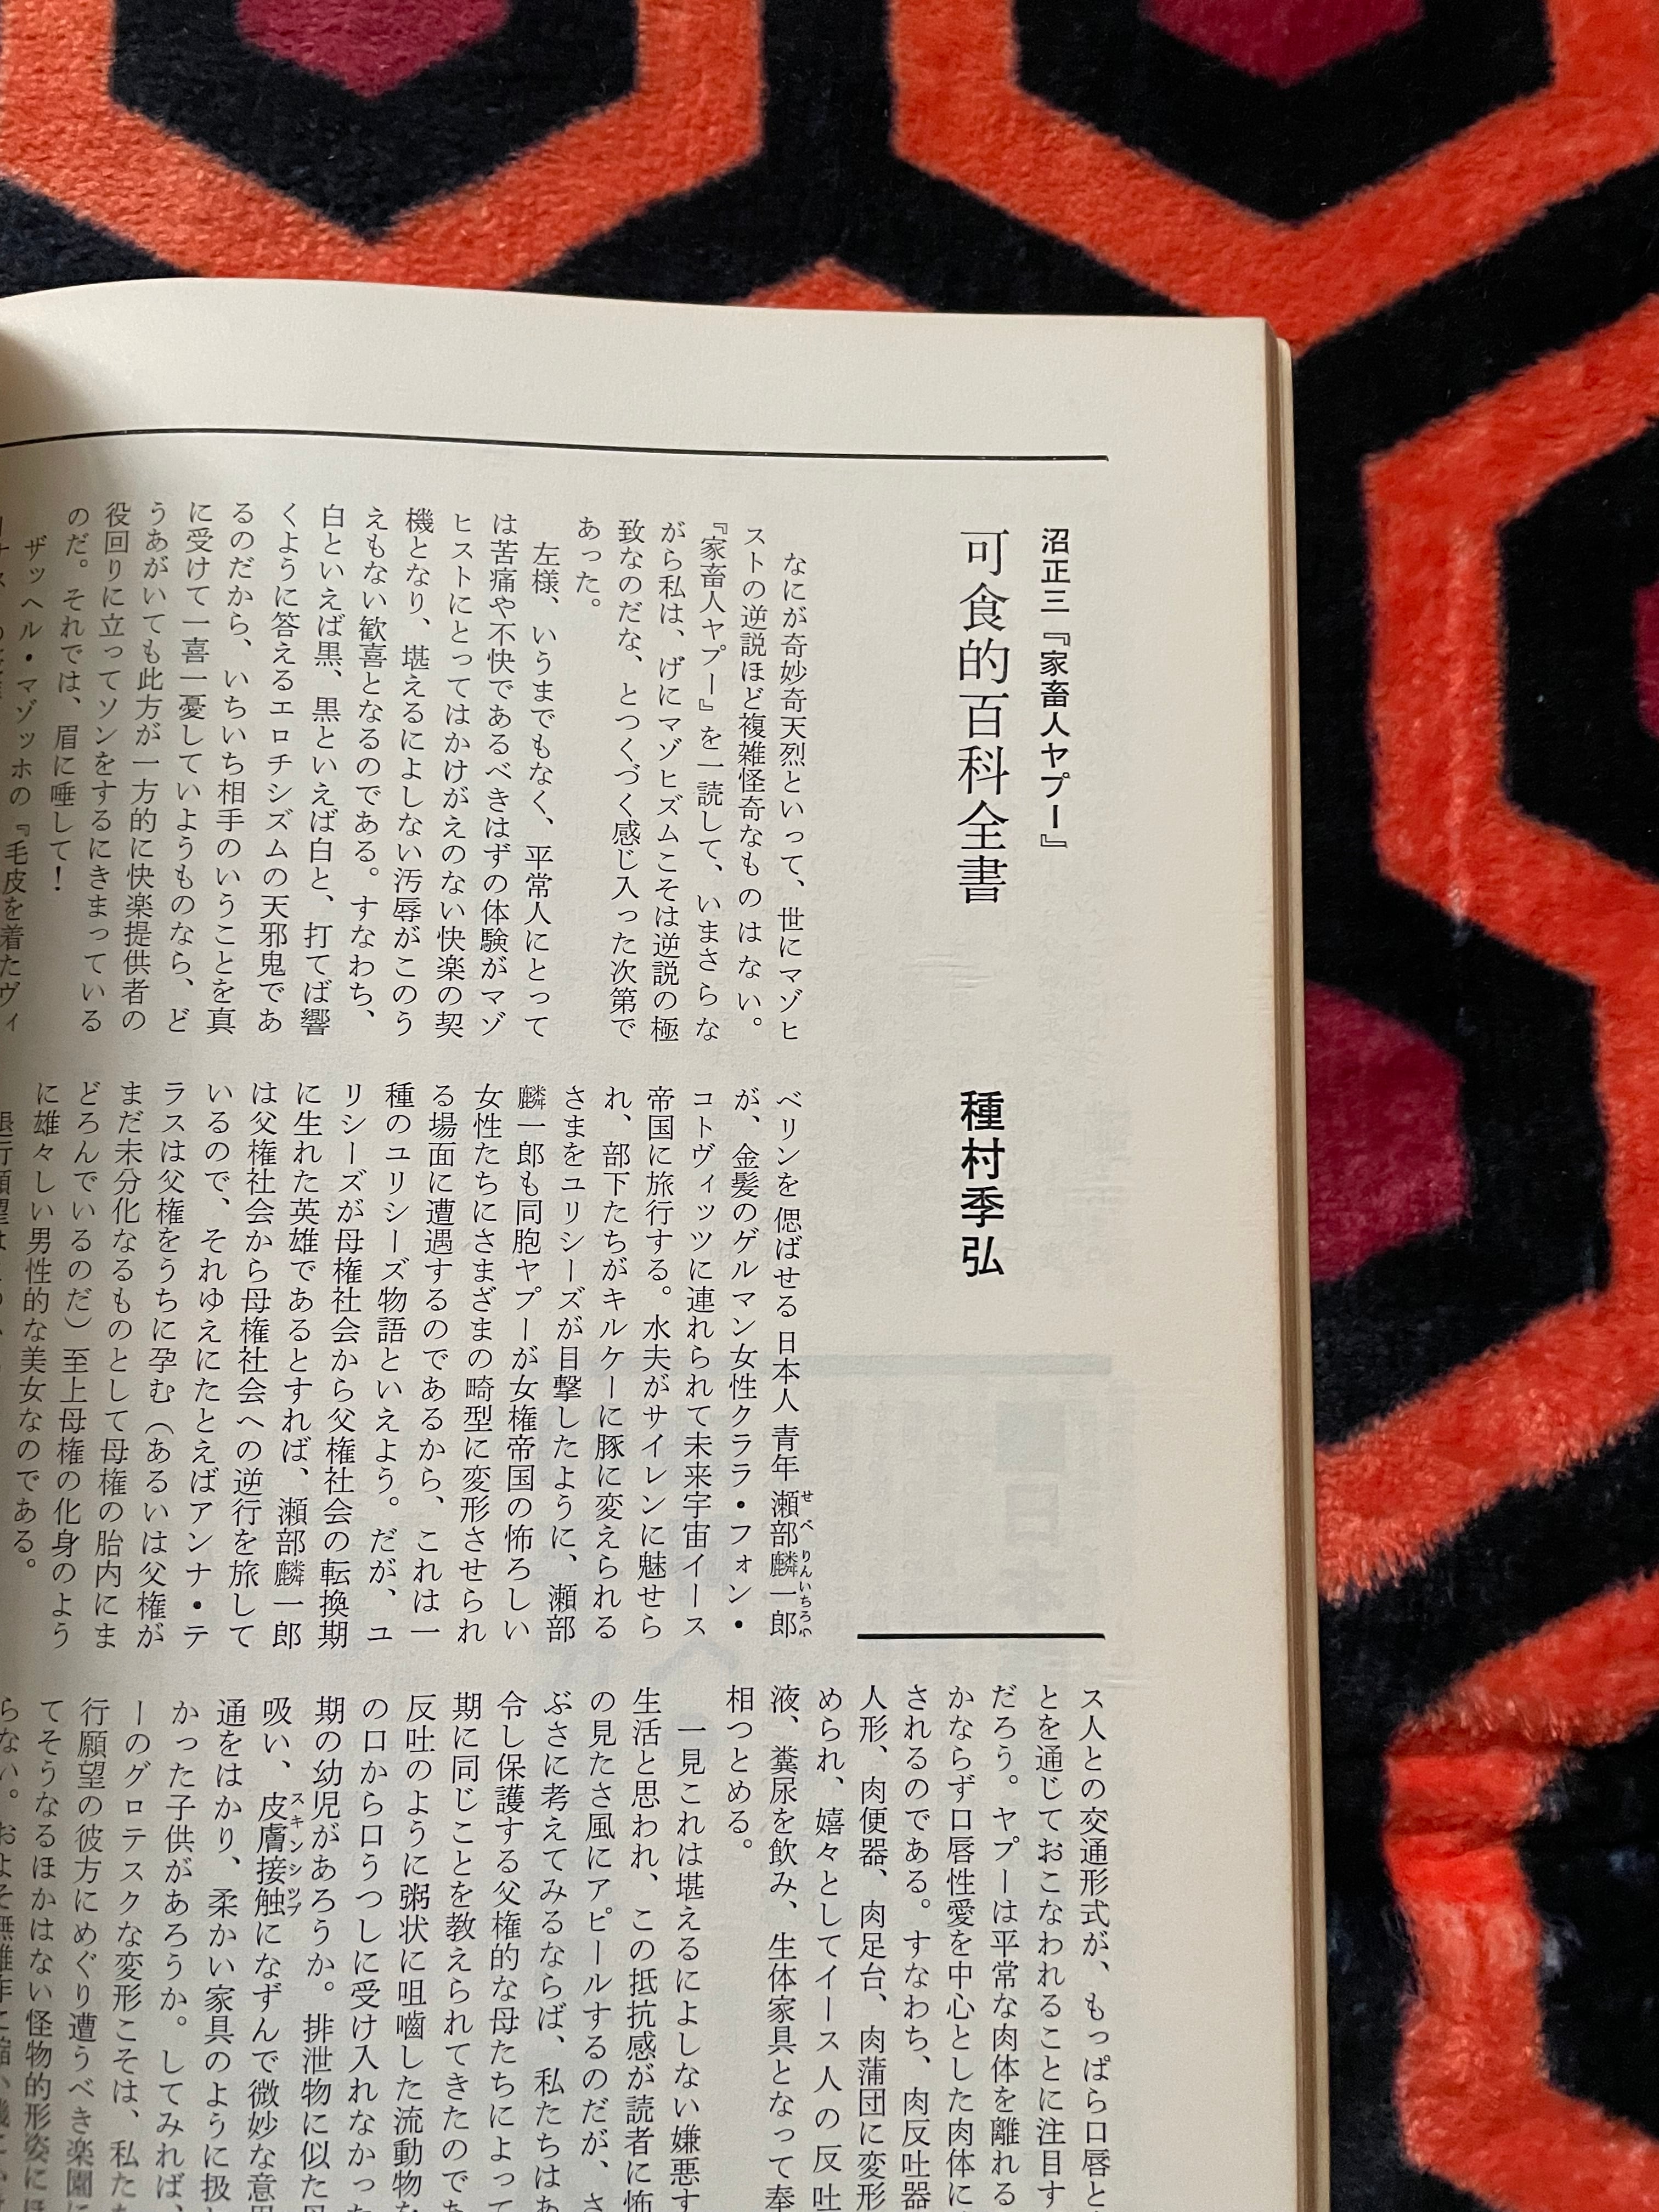 沼正三『家畜人ヤプー』
可食的百科全書
種村季弘
なにが奇妙奇天烈といって、世にマゾヒ
ストの逆説ほど複雑怪奇なものはない。
『家畜人ヤプー』を一読して、いまさらな
がら私は、げにマゾヒズムこそは逆説の極
致なのだな、とつくづく感じ入った次第で
あった。
左様、いうまでもなく、平常人にとって
は苦痛や不快であるべきはずの体験がマゾ
ヒストにとってはかけがえのない快楽の契
機となり、堪えるによしない汚辱がこのう
えもない歓喜となるのである。すなわち、
白といえば黒、黒といえば白と、打てば響
くように答えるエロチシズムの天邪鬼であ
るのだから、いちいち相手のいうことを真
に受けて一喜一憂していようものなら、ど
うあがいても此方が一方的に快楽提供者の
役回りに立ってソンをするにきまっている
のだ。それでは、眉に唾して！
ザッヘル・マゾッホの『毛皮を着たヴィ
ベリンを偲ばせる日本人青年瀬部麟一郎
が、金髪のゲルマン女性クララ・フォン・
コトヴィッツに連れられて未来宇宙イース
帝国に旅行する。水夫がサイレンに魅せら
れ、部下たちがキルケーに豚に変えられる
さまをユリシーズが目撃したように、瀬部
麟一郎も同胞ヤプーが女権帝国の怖ろしい
女性たちにさまざまの畸型に変形させられ
る場面に遭遇するのであるから、これは一
種のユリシーズ物語といえよう。だが、ユ
リシーズが母権社会から父権社会の転換期
に生れた英雄であるとすれば、瀬部麟一郎
は父権社会から母権社会への逆行を旅して
いるので、それゆえにたとえばアンナ・テ
ラスは父権をうちに孕む（あるいは父権が
まだ未分化なるものとして母権の胎内にま
どろんでいるのだ）至上母権の化身のよう
に雄々しい男性的な美女なのである。
ス人との交通形式が、もっぱら口唇と
とを通じておこなわれることに注目す
だろう。ヤプーは平常な肉体を離れる
かならず口唇性愛を中心とした肉体に
されるのである。すなわち、肉反吐器
人形、肉便器、肉足台、肉蒲団に変形
められ、嬉々としてイース人の反吐
液、糞尿を飲み、生体家具となって奉
相つとめる。
一見これは堪えるによしない嫌悪す
生活と思われ、この抵抗感が読者に怖
の見たさ風にアピールするのだが、さ
ぶさに考えてみるならば、私たちはあ
令し保護する父権的な母たちによって
期に同じことを教えられてきたのでた
反吐のように粥状に咀嚼した流動物な
の口から口うつしに受け入れなかった
期の幼児があろうか。排泄物に似た母
吸い、皮膚接触になずんで微妙な意思
通をはかり、柔かい家具のように扱い
かった子供があろうか。してみれば、
ーのグロテスクな変形こそは、私たち
行願望の彼方にめぐり遭うべき楽園に
てそうなるほかはない怪物的形姿にほ